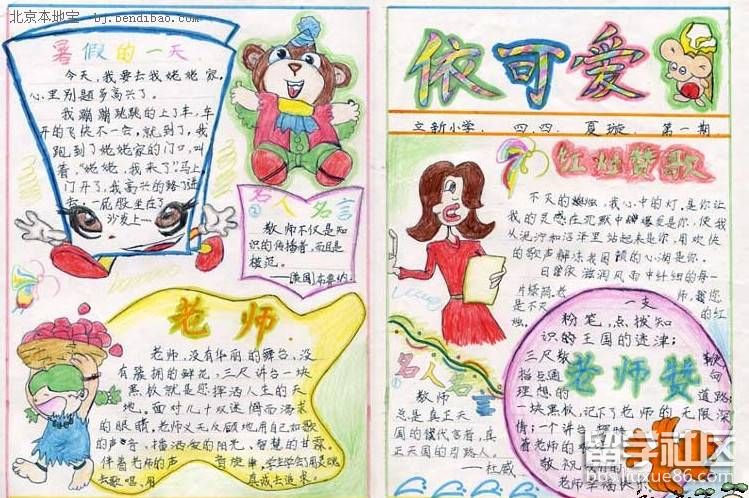 北京本地宝 - bj.bendibao.com
暑假的一天
今天,我要去我姥姥家,
心里别题多高兴了。
我蹦蹦跳跳的上了车,车
开的飞快不一会,就到了,我
跑到了姥姥家的门口,叫
着,“姥姥,我来了”马上
门开了,我高兴的
一屁股坐在了
沙发上
名人名言
②
教师不仅是知
识的传播者,而且是
模范。
老师
老师,没有华丽的舞台,没
有簇拥的鲜花,三尺讲台一块
黑板就是您挥洒人生的天
地。面对几十双迷惘而渴求
的眼睛,老师义无反顾地用自己如歌
的声音、播洒爱的阳光、智慧的甘霖。
伴着老师的声
去歌唱、用真诚去追求。
依可爱
立新小学. 四.四. 夏璇. 第一期
红烛赞歌
不灭的,我心中的灯,是你让
我的灵感在沉默中爆发是你,使我
从泥泞和沼泽里站起来是你,用欢快
的歌声解冻我困顿的心涧是你。
日曾依滋润风雨中纤细的每一
名人名言
①
教师
总是真正天
国的代言者,真
正天国的引路人。
——杜威
一支
粉笔,点拨知
识的王国的迷津;
三尺
指点通向
理想的道路;
老师赞
一块黑板,记下了老师的无限深
情;一个讲台
着老师的
敬祝
老师幸福快乐
留学社区
bbs.liuxue86.com